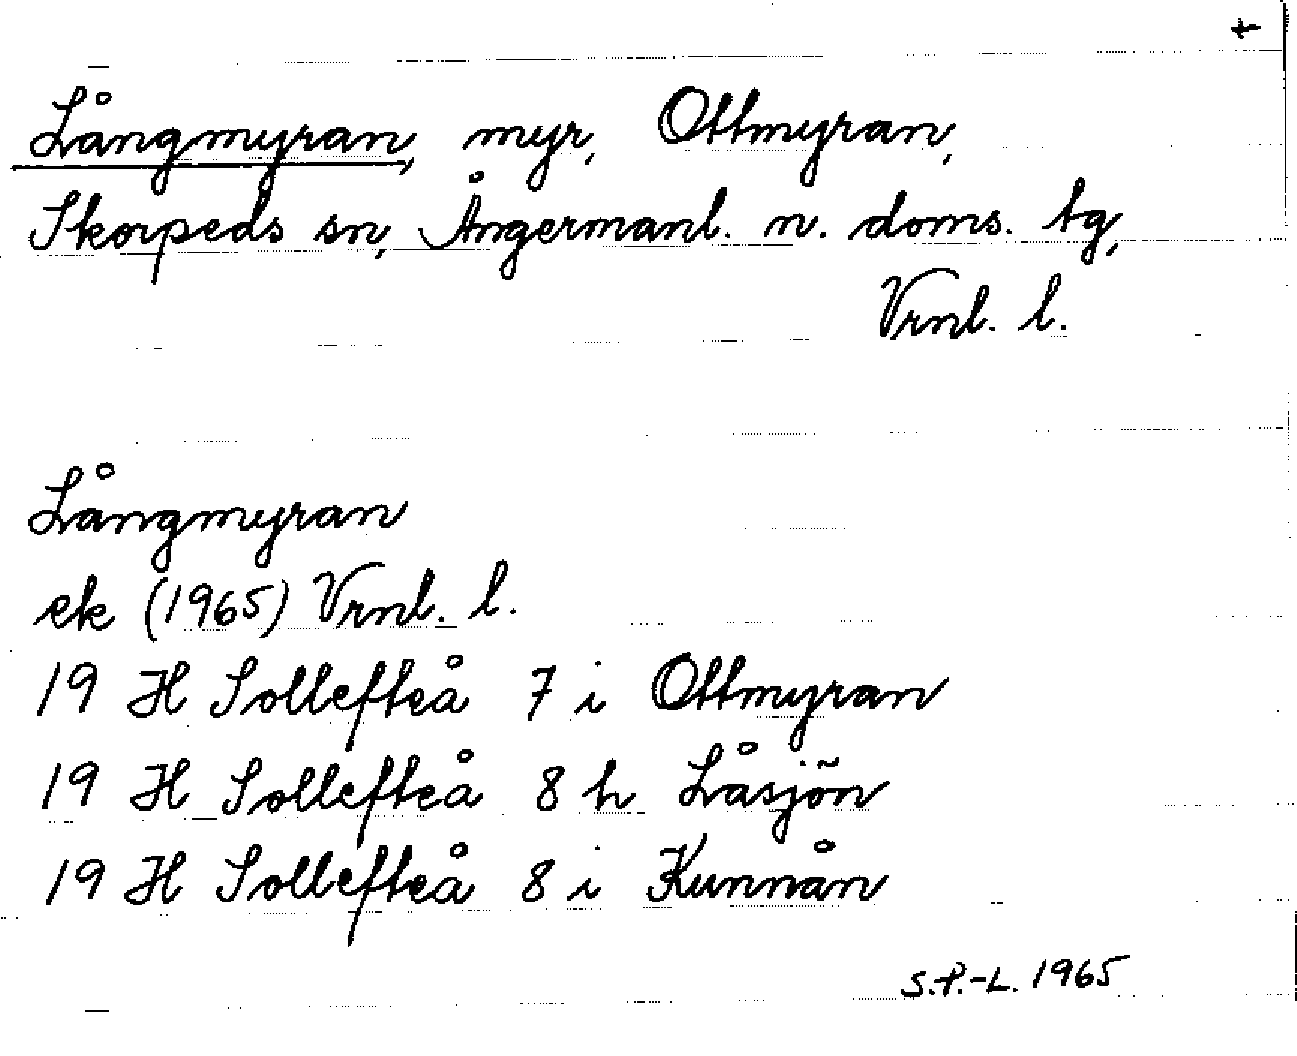 +
Långmyran, myr, Ottmyran,
Skorpeds sn, Ångermanl. n. doms. tg,
Vrnl. l.
Långmyran
ek (1965) Vrnl. l.
19 H Sollefteå 7 i Ottmyran
19 H Sollefteå 8 h Låsjön
19 H Sollefteå 8 i Kunnån
S.P.-L. 1965